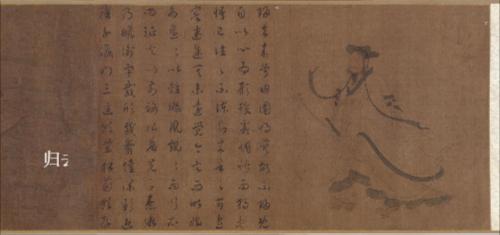 歸去來兮田園將蕪胡不歸既
自以心為形役奚惆悵而獨悲
悟已往之不諫知來者之可追
實迷途其未遠覺今是而昨非
舟遙遙以輕颺風飄飄而吹衣
問征夫以前路恨晨光之熹微
乃瞻衡宇載欣載奔僮僕歡迎
稚子候門三逕就荒松菊猶存
归